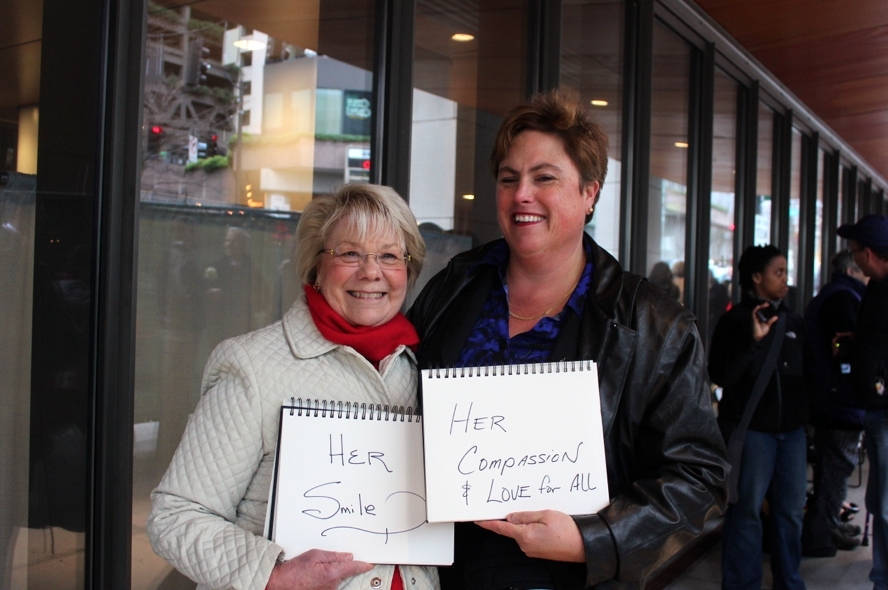 HER
Smile
HER
COMPASSION
& LOVE for ALL